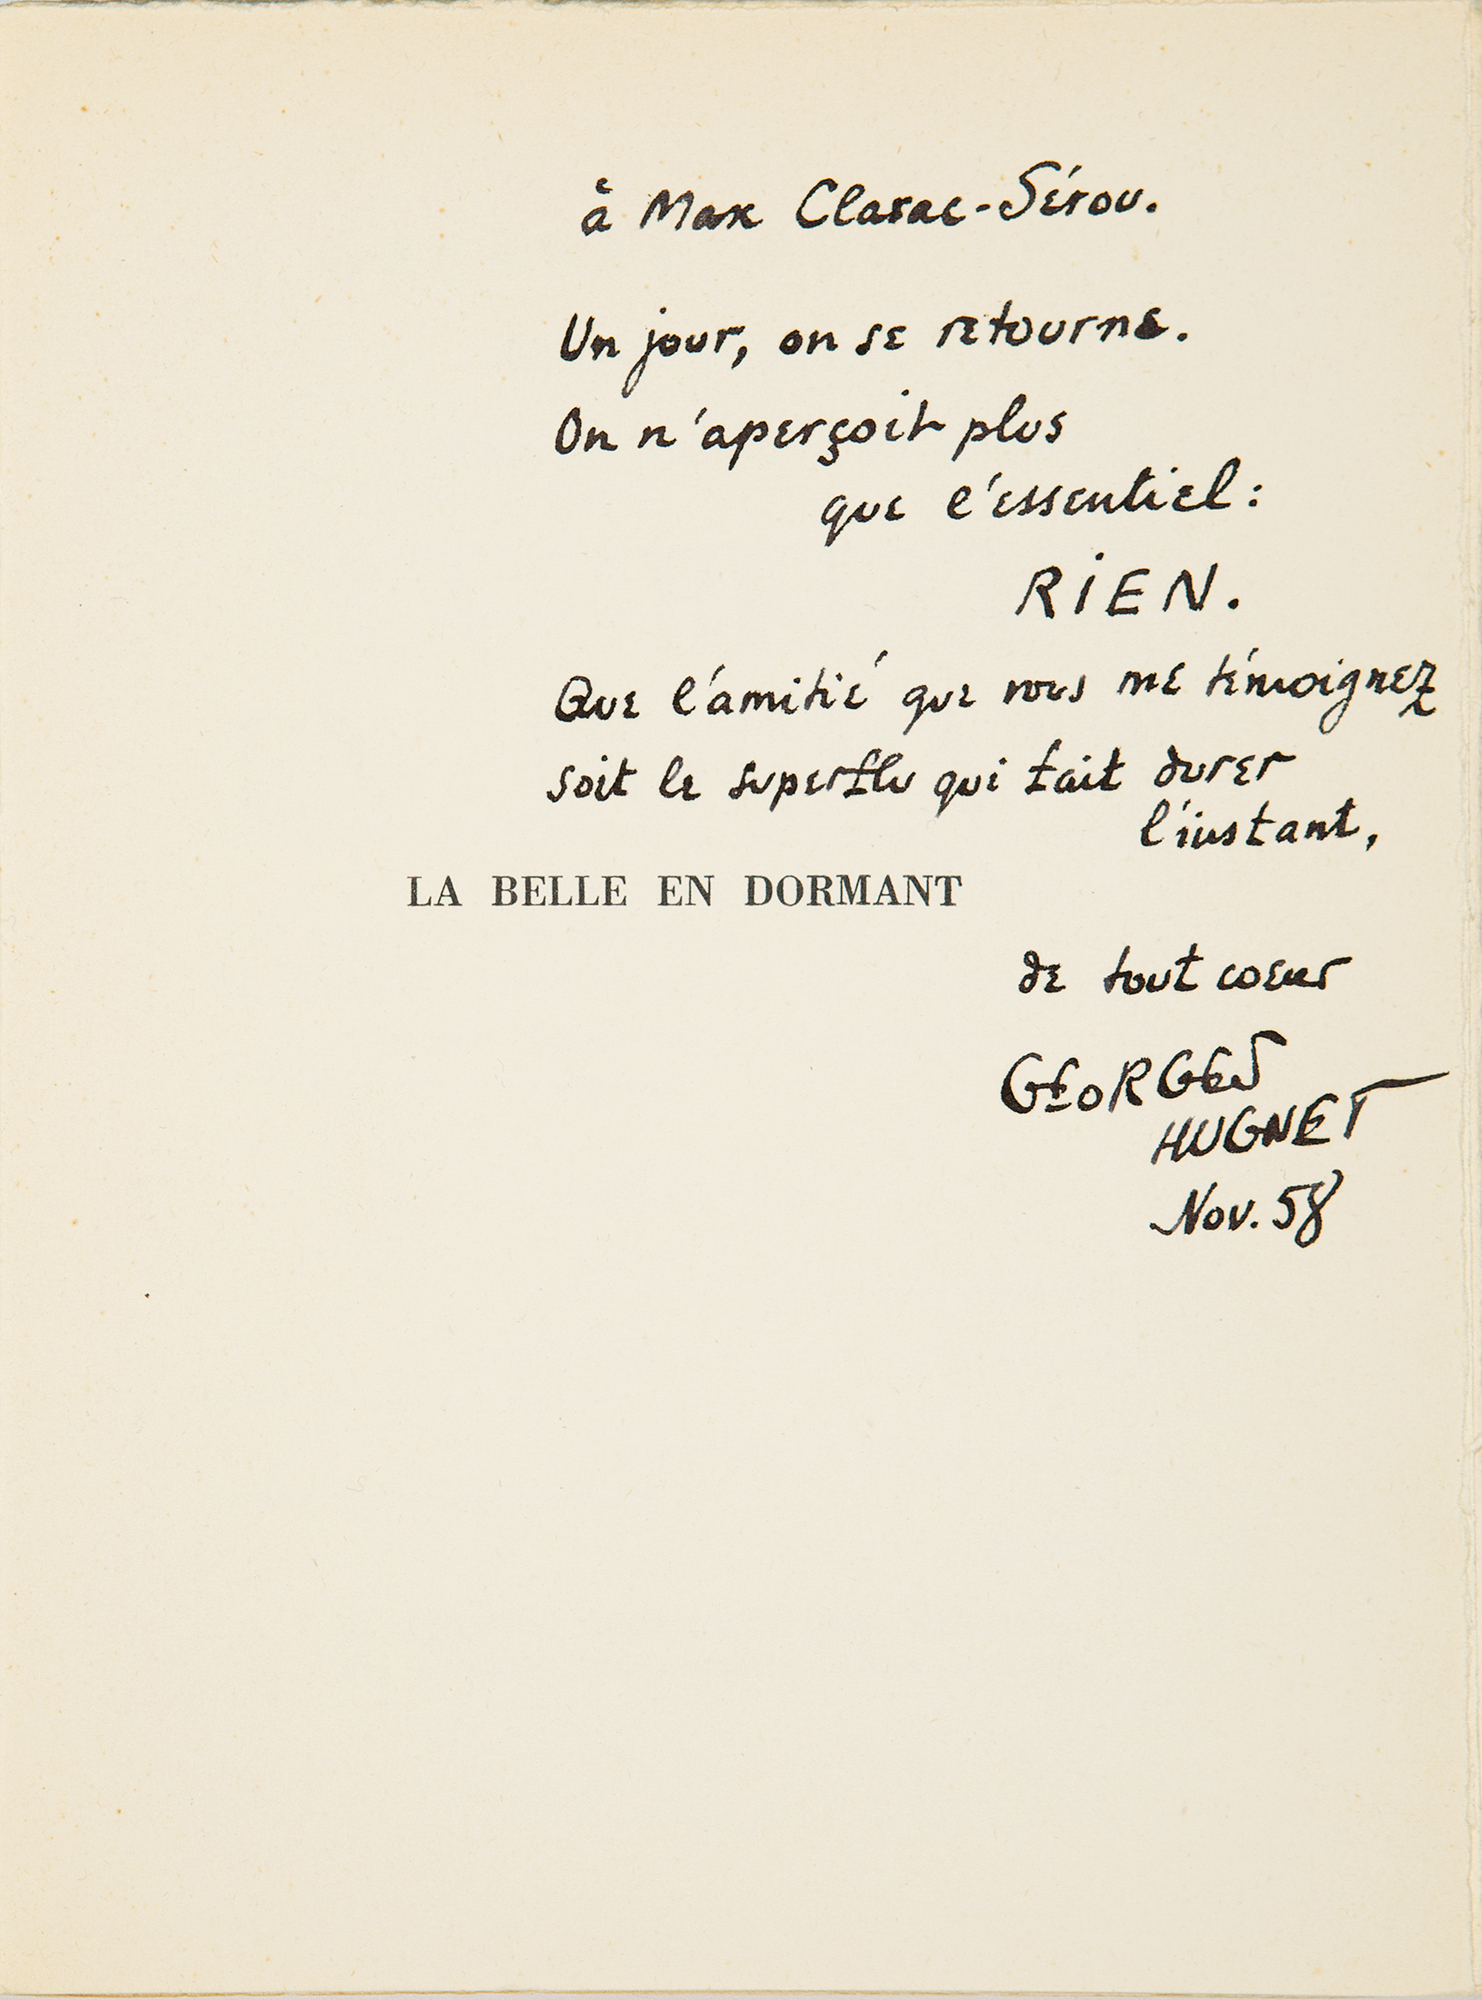 à Max Clarac-Sérou.
Un jour, on se retourne.
On n'aperçoit plus
que l'essentiel:
RIEN.
Que l'amitié que vous me témoignez
soit le superflu qui fait durer
l'instant,
LA BELLE EN DORMANT
de tout coeur
GEORGES
HUGNET
Nov. 58